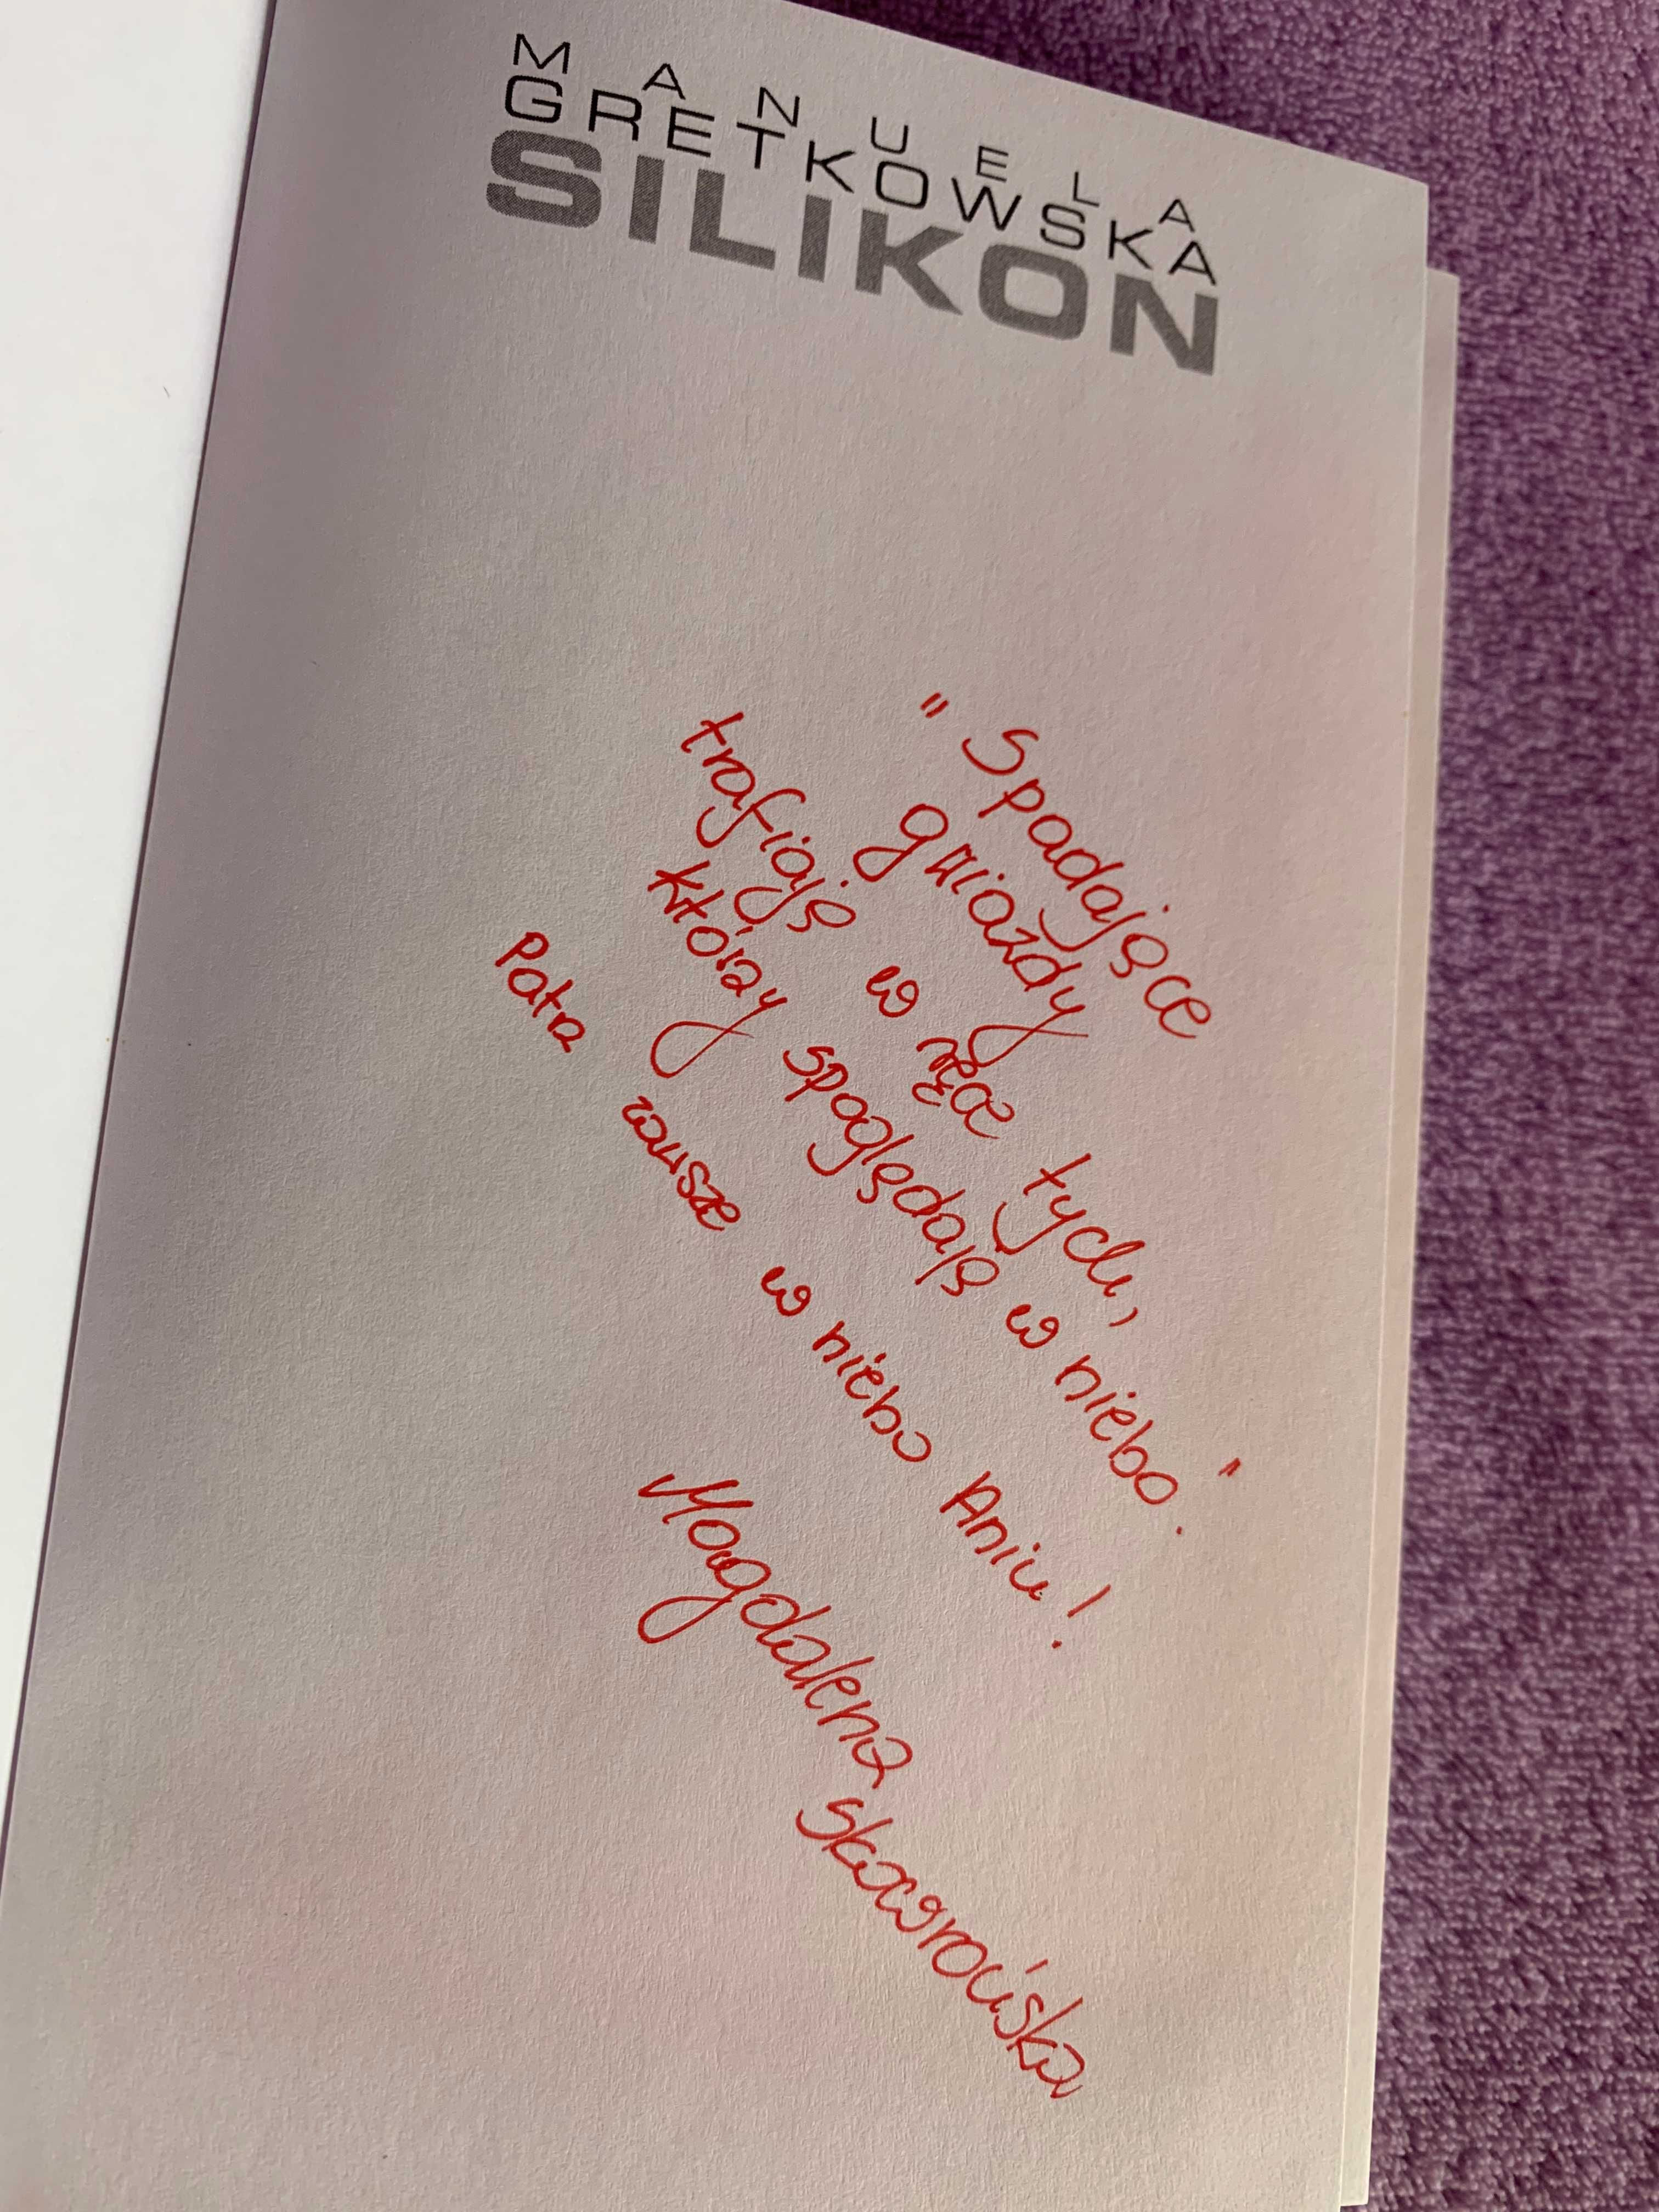 MANUELA
GRETKOWSKA
SILIKON
"Spadające
gwiazdy
trafiają w ręce tych,
którzy spoglądają w niebo."
Patrz zawsze w niebo Aniu!
Magdalena Skowrońska